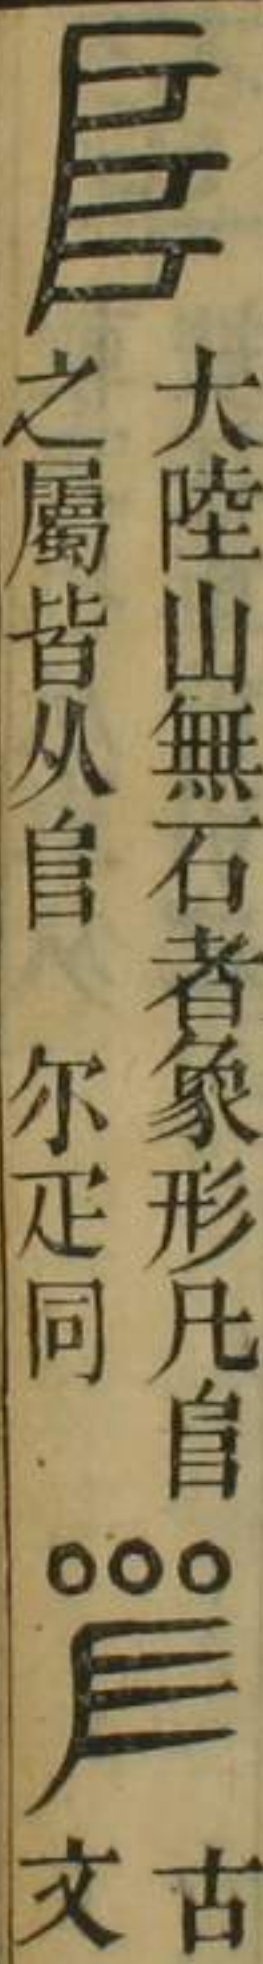 𨸏
大陸山無石者象形凡𨸏
之屬皆从𨸏　尔疋同
古
文